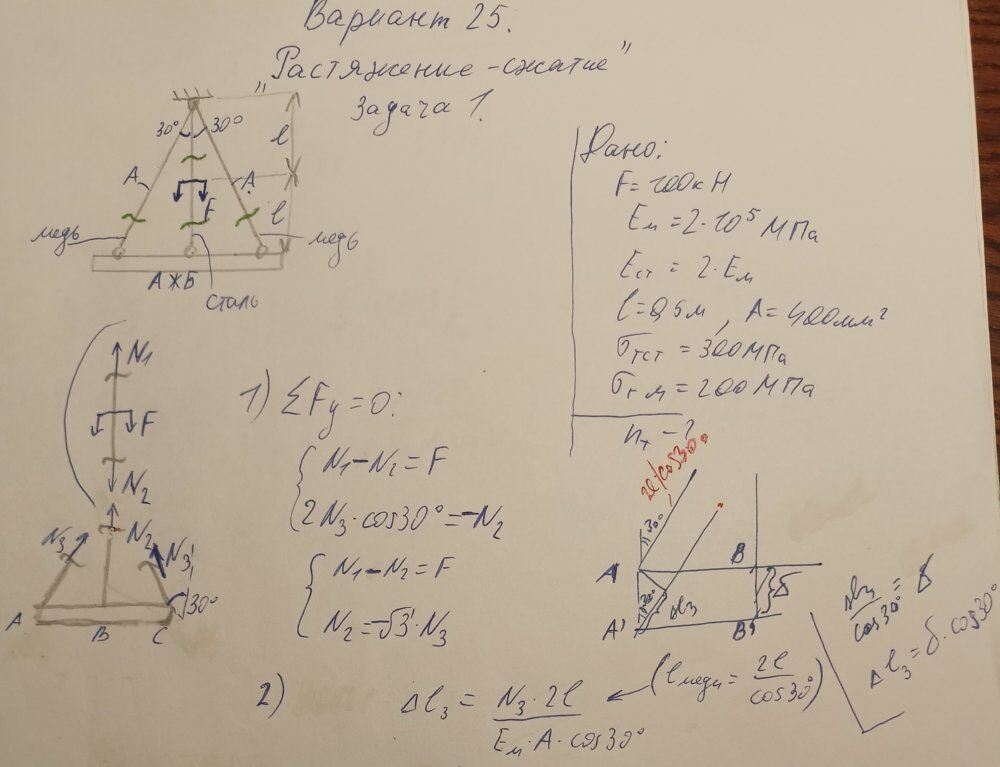 Вариант 25.
"Растяжение-сжатие"
Задача 1.
30° 30°
l
A A
F
l
медь медь
АЖБ
сталь
Дано:
F = 100кН
Eм = 2·10⁵ МПа
Eст = 2·Eм
l = 0,5м, A = 400мм²
σтст = 300МПа
σт м = 200МПа
nт - ?
N1
F
N2
N3 N2 N3'
30°
A B C
1) ΣFy = 0:
N1 - N2 = F
2N3·cos30° = -N2
N1 - N2 = F
N2 = -√3'·N3
2l/cos30°
30°
A B
30° Δl3 δ
A' B'
Δl3/cos30° = δ
Δl3 = δ·cos30°
2) Δl3 = N3·2l / Eм·A·cos30° ← (lмеди = 2l/cos30°)